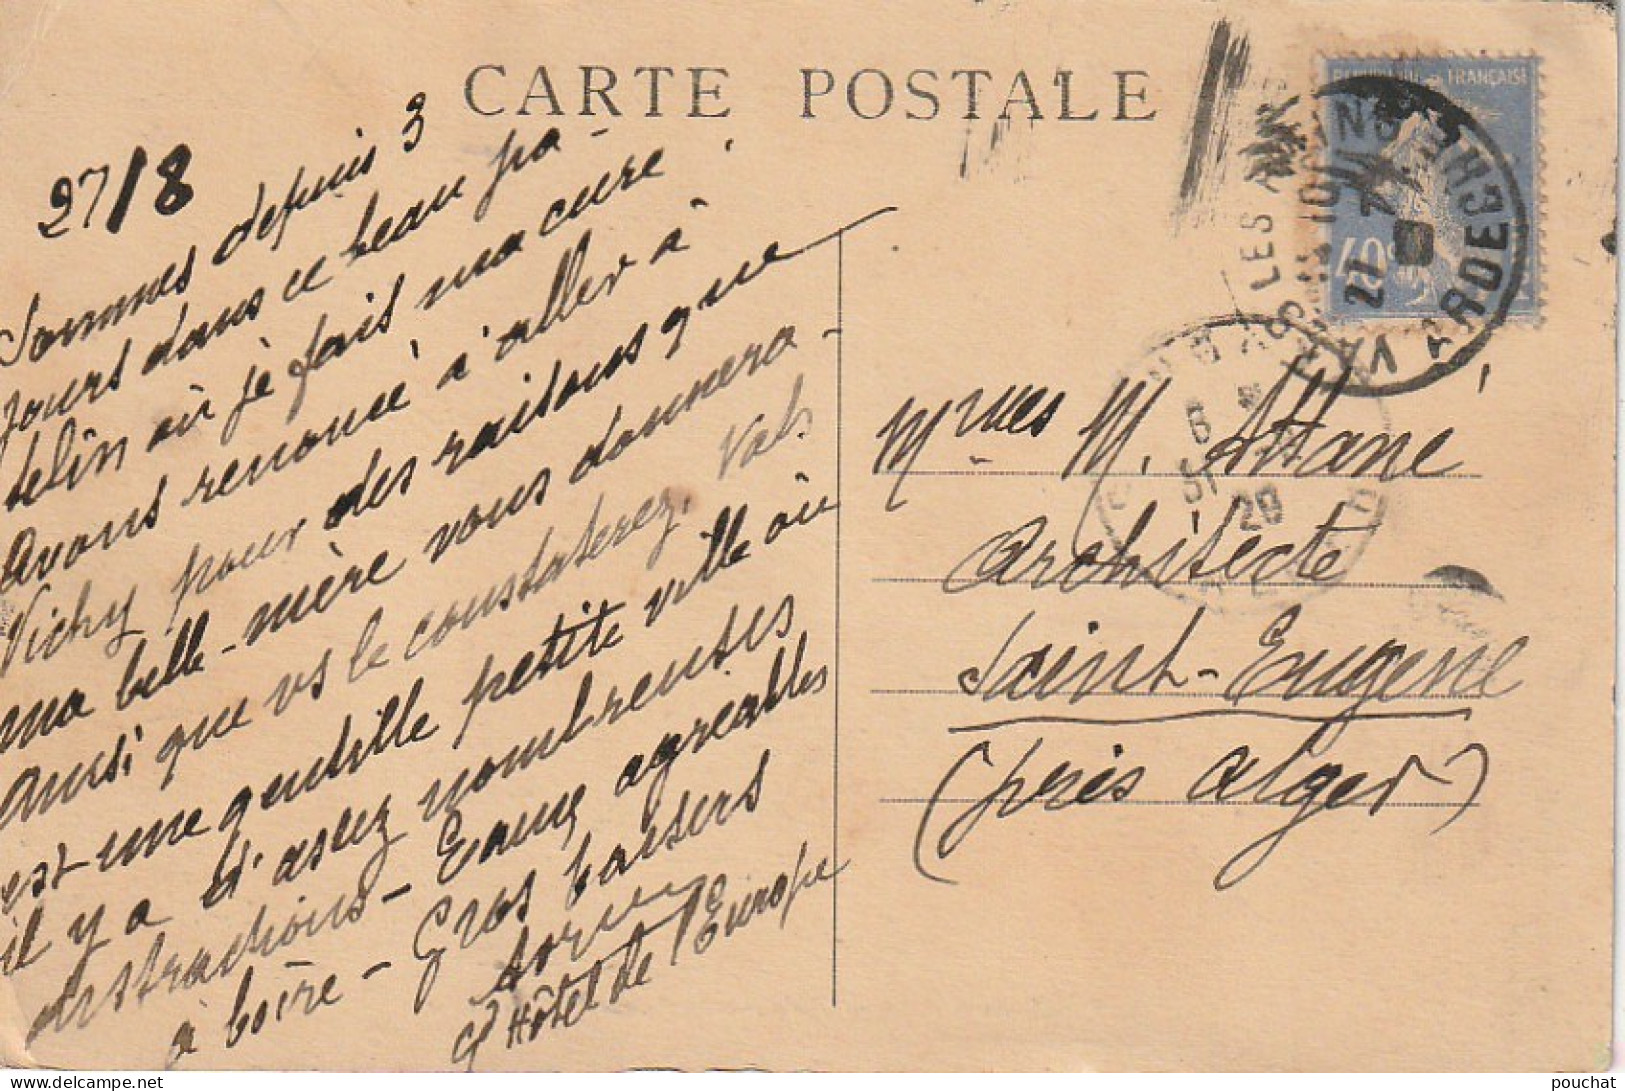 CARTE POSTALE
27/8
Sommes depuis 3
jours dans ce beau pa-
telin où je fais ma cure.
Avons renoncé à aller à
Vichy pour des raisons que
ma belle-mère vous donnera
ainsi que vs le constaterez. Vals
est une gentille petite ville où
il y a d'assez nombreuses
distractions - Eaux agréables
à boire - Gros baisers
Hôtel de l'Europe
RÉPUBLIQUE FRANÇAISE
40c
VALS LES BAINS
ARDECHE
27
Mmes M. Attané
Architecte
Saint-Eugène
(près Alger)
pouchat
www.delcampe.net